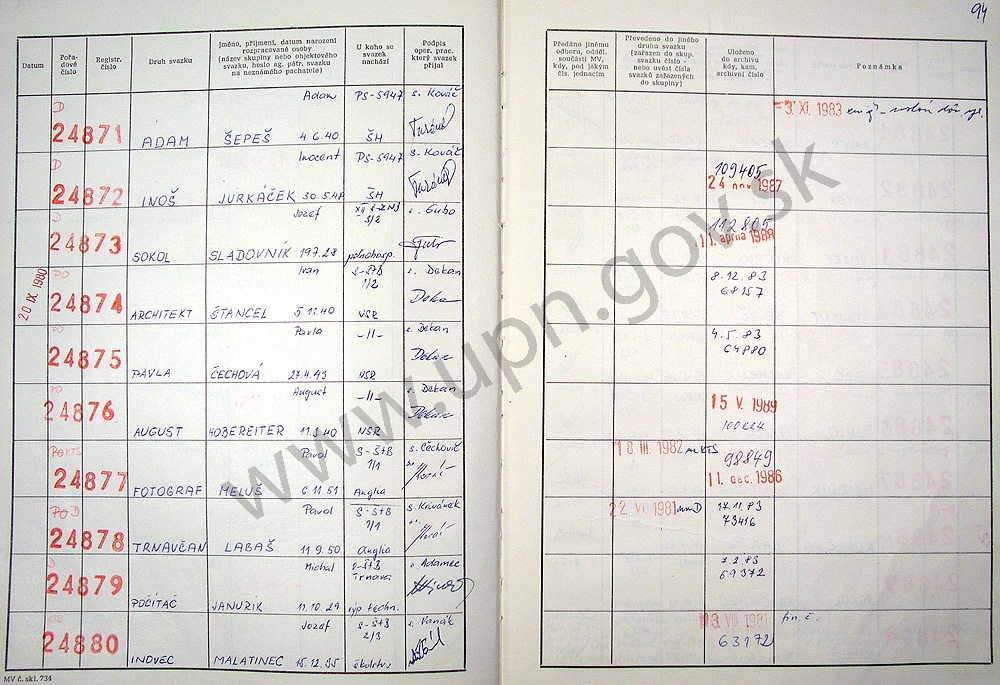 94
Datum
Pořadové číslo
Registr. číslo
Druh svazku
Jméno, příjmení, datum narození
rozpracované osoby
(název skupiny nebo objektového
svazku, heslo ag. pátr. svazku
na neznámého pachatele)
U koho se
svazek
nachází
Podpis
oper. prac.
který svazek
přijal
Předáno jinému
odboru, odděl.
součásti MV,
kdy, pod jakým
čís. jednacím
Převedeno do jiného
druhu svazku
(zařazen do skup.
svazku číslo -
nebo uvést čísla
svazků zařazených
do skupiny)
Uloženo
do archivu
kdy, kam,
archivní číslo
Poznámka
D Adam PS-5947 s. Kováč
24871 ADAM ŠEPEŠ 4.6.40 ŠH
3. XI. 1983
D Inocent PS-5947 s. Kováč
24872 INOŠ JURKÁČEK 30.5.48 ŠH
109405
24 nov 1987
D Jozef s. Gubo
24873 SOKOL SLADOVNÍK 19.7.28
112805
11. apríla 1988
20 IX. 1980
PO Ivan S-ŠtB s. Dekan
1/2
24874 ARCHITEKT ŠTANCEL 5.11.40 NSR
8.12.83
68157
PO Pavla -||- s. Dekan
24875 PAVLA ČECHOVÁ 27.4.43 NSR
4.5.83
64880
PO August -||- s. Dekan
24876 AUGUST HOBEREITER NSR
15 V. 1989
PO KTS Pavol S-ŠtB s. Čechovič
1/1
24877 FOTOGRAF MELUŠ 6.11.51 Anglia
18. III. 1982
98849
11. dec. 1986
PO D Pavol S-ŠtB s. Krivánek
1/1
24878 TRNAVČAN LABAŠ 11.9.50 Anglia
22. VI. 1981
17.11.83
73416
D Michal S-ŠtB s. Adamec
Trnava
24879 POČÍTAČ JANURIK 11.10.29 výp techn.
7.2.83
69372
KTS Jozef S-ŠtB s. Vanák
2/3
24880 INOVEC MALATINEC 15.12.35 školstvo
VIII 1981
63172
fin. č.
MV č. skl. 734
www.upn.gov.sk